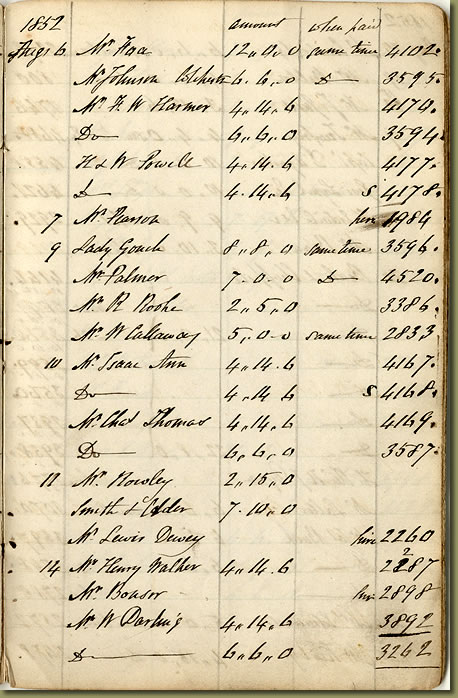 1852 amount when paid
Augs 6 Mr Haa 12,,0,,0 same time 4102.
Mr Johnson 6,,6,,0 Do 3595.
Mr F. W Harmer 4,,14,,6 4170.
Do 6,,6,,0 3594.
H & W Powell 4,,14,,6 4177.
Do 4,,14,,6 S 4178.
7 Mr Pearson hire 1984
9 Lady Gooch 8,,8,,0 same time 3596.
Mr Palmer 7-0-0 Do 4520.
Mr R Rooke 2,,5,,0 3386.
Mr W Callaway 5,,0-0 same time 2833
10 Mr Isaac Ann 4,,14,,6 4167.
Do 4,,14,,6 S 4168.
Mr Chas Thomas 4,,14,,6 4169.
Do 6,,6,,0 3587.
11 Mr Rowley 2,,15,,0
Smith & Elder 7-10,,0
Mr Lewis Dewey hire 2260
14 Mr Henry Walker 4,,14,,6 2287
Mr Bowsor hire 2898
Mr W Darling 4,,14,,6 3892
Do 6,,6,,0 3262